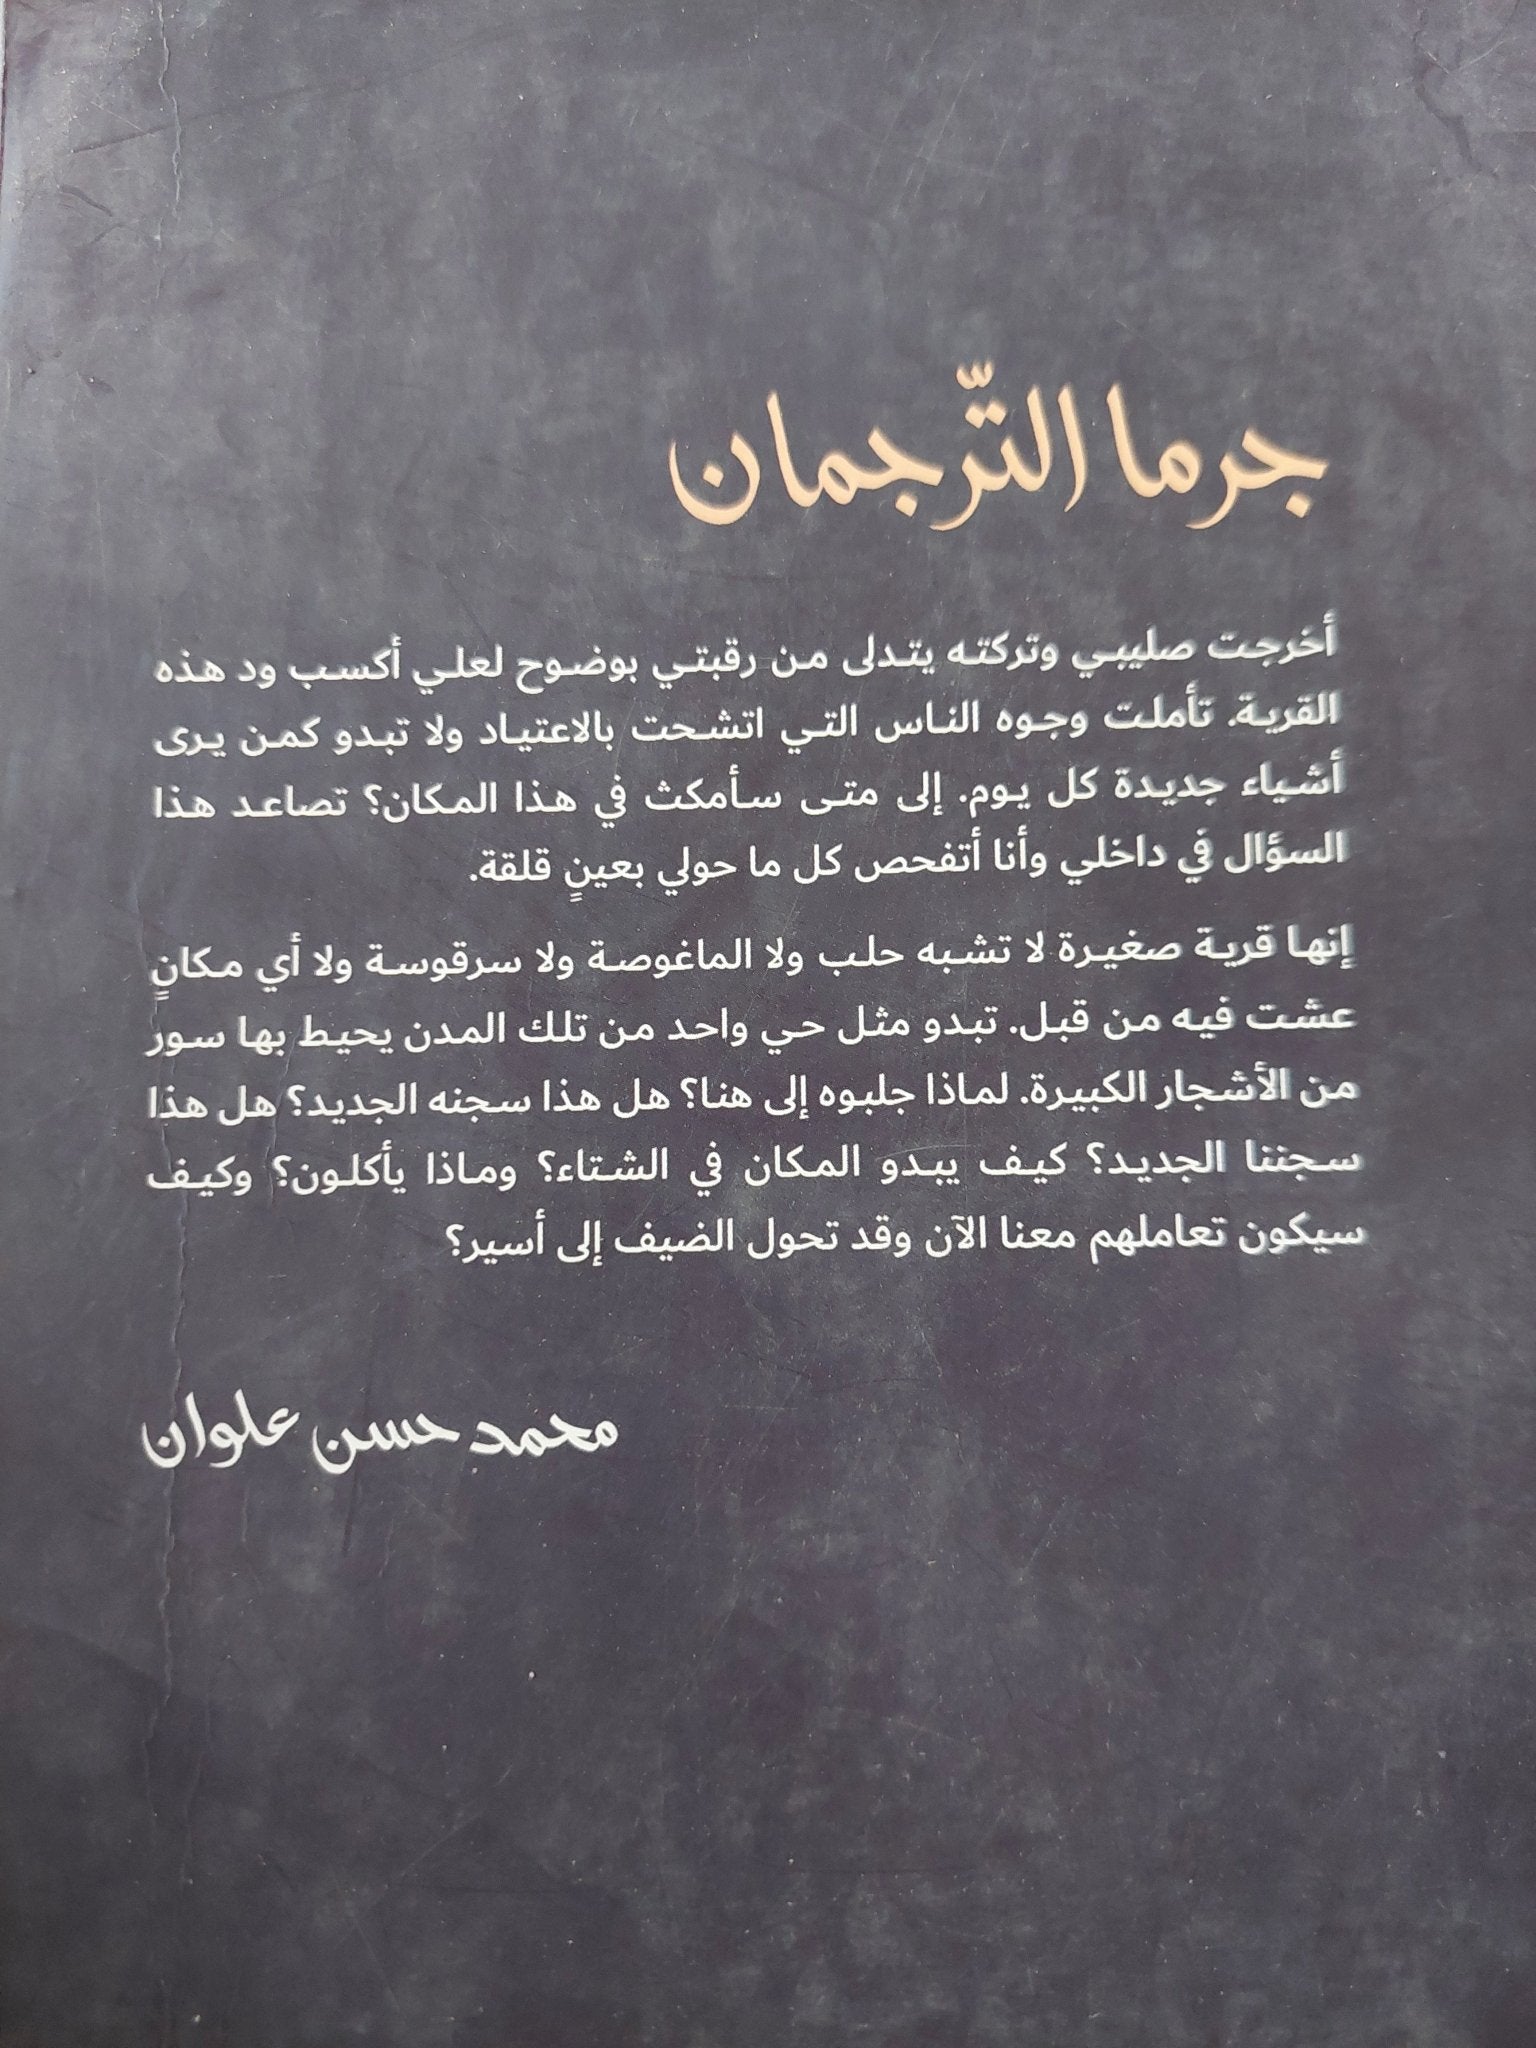 جرما التّرجمان
أخرجت صليبي وتركته يتدلى من رقبتي بوضوح لعلي أكسب ود هذه
القرية. تأملت وجوه الناس التي اتشحت بالاعتياد ولا تبدو كمن يرى
أشياء جديدة كل يوم. إلى متى سأمكث في هذا المكان؟ تصاعد هذا
السؤال في داخلي وأنا أتفحص كل ما حولي بعينٍ قلقة.
إنها قرية صغيرة لا تشبه حلب ولا الماغوصة ولا سرقوسة ولا أي مكانٍ
عشت فيه من قبل. تبدو مثل حي واحد من تلك المدن يحيط بها سور
من الأشجار الكبيرة. لماذا جلبوه إلى هنا؟ هل هذا سجنه الجديد؟ هل هذا
سجننا الجديد؟ كيف يبدو المكان في الشتاء؟ وماذا يأكلون؟ وكيف
سيكون تعاملهم معنا الآن وقد تحول الضيف إلى أسير؟
محمد حسن علوان